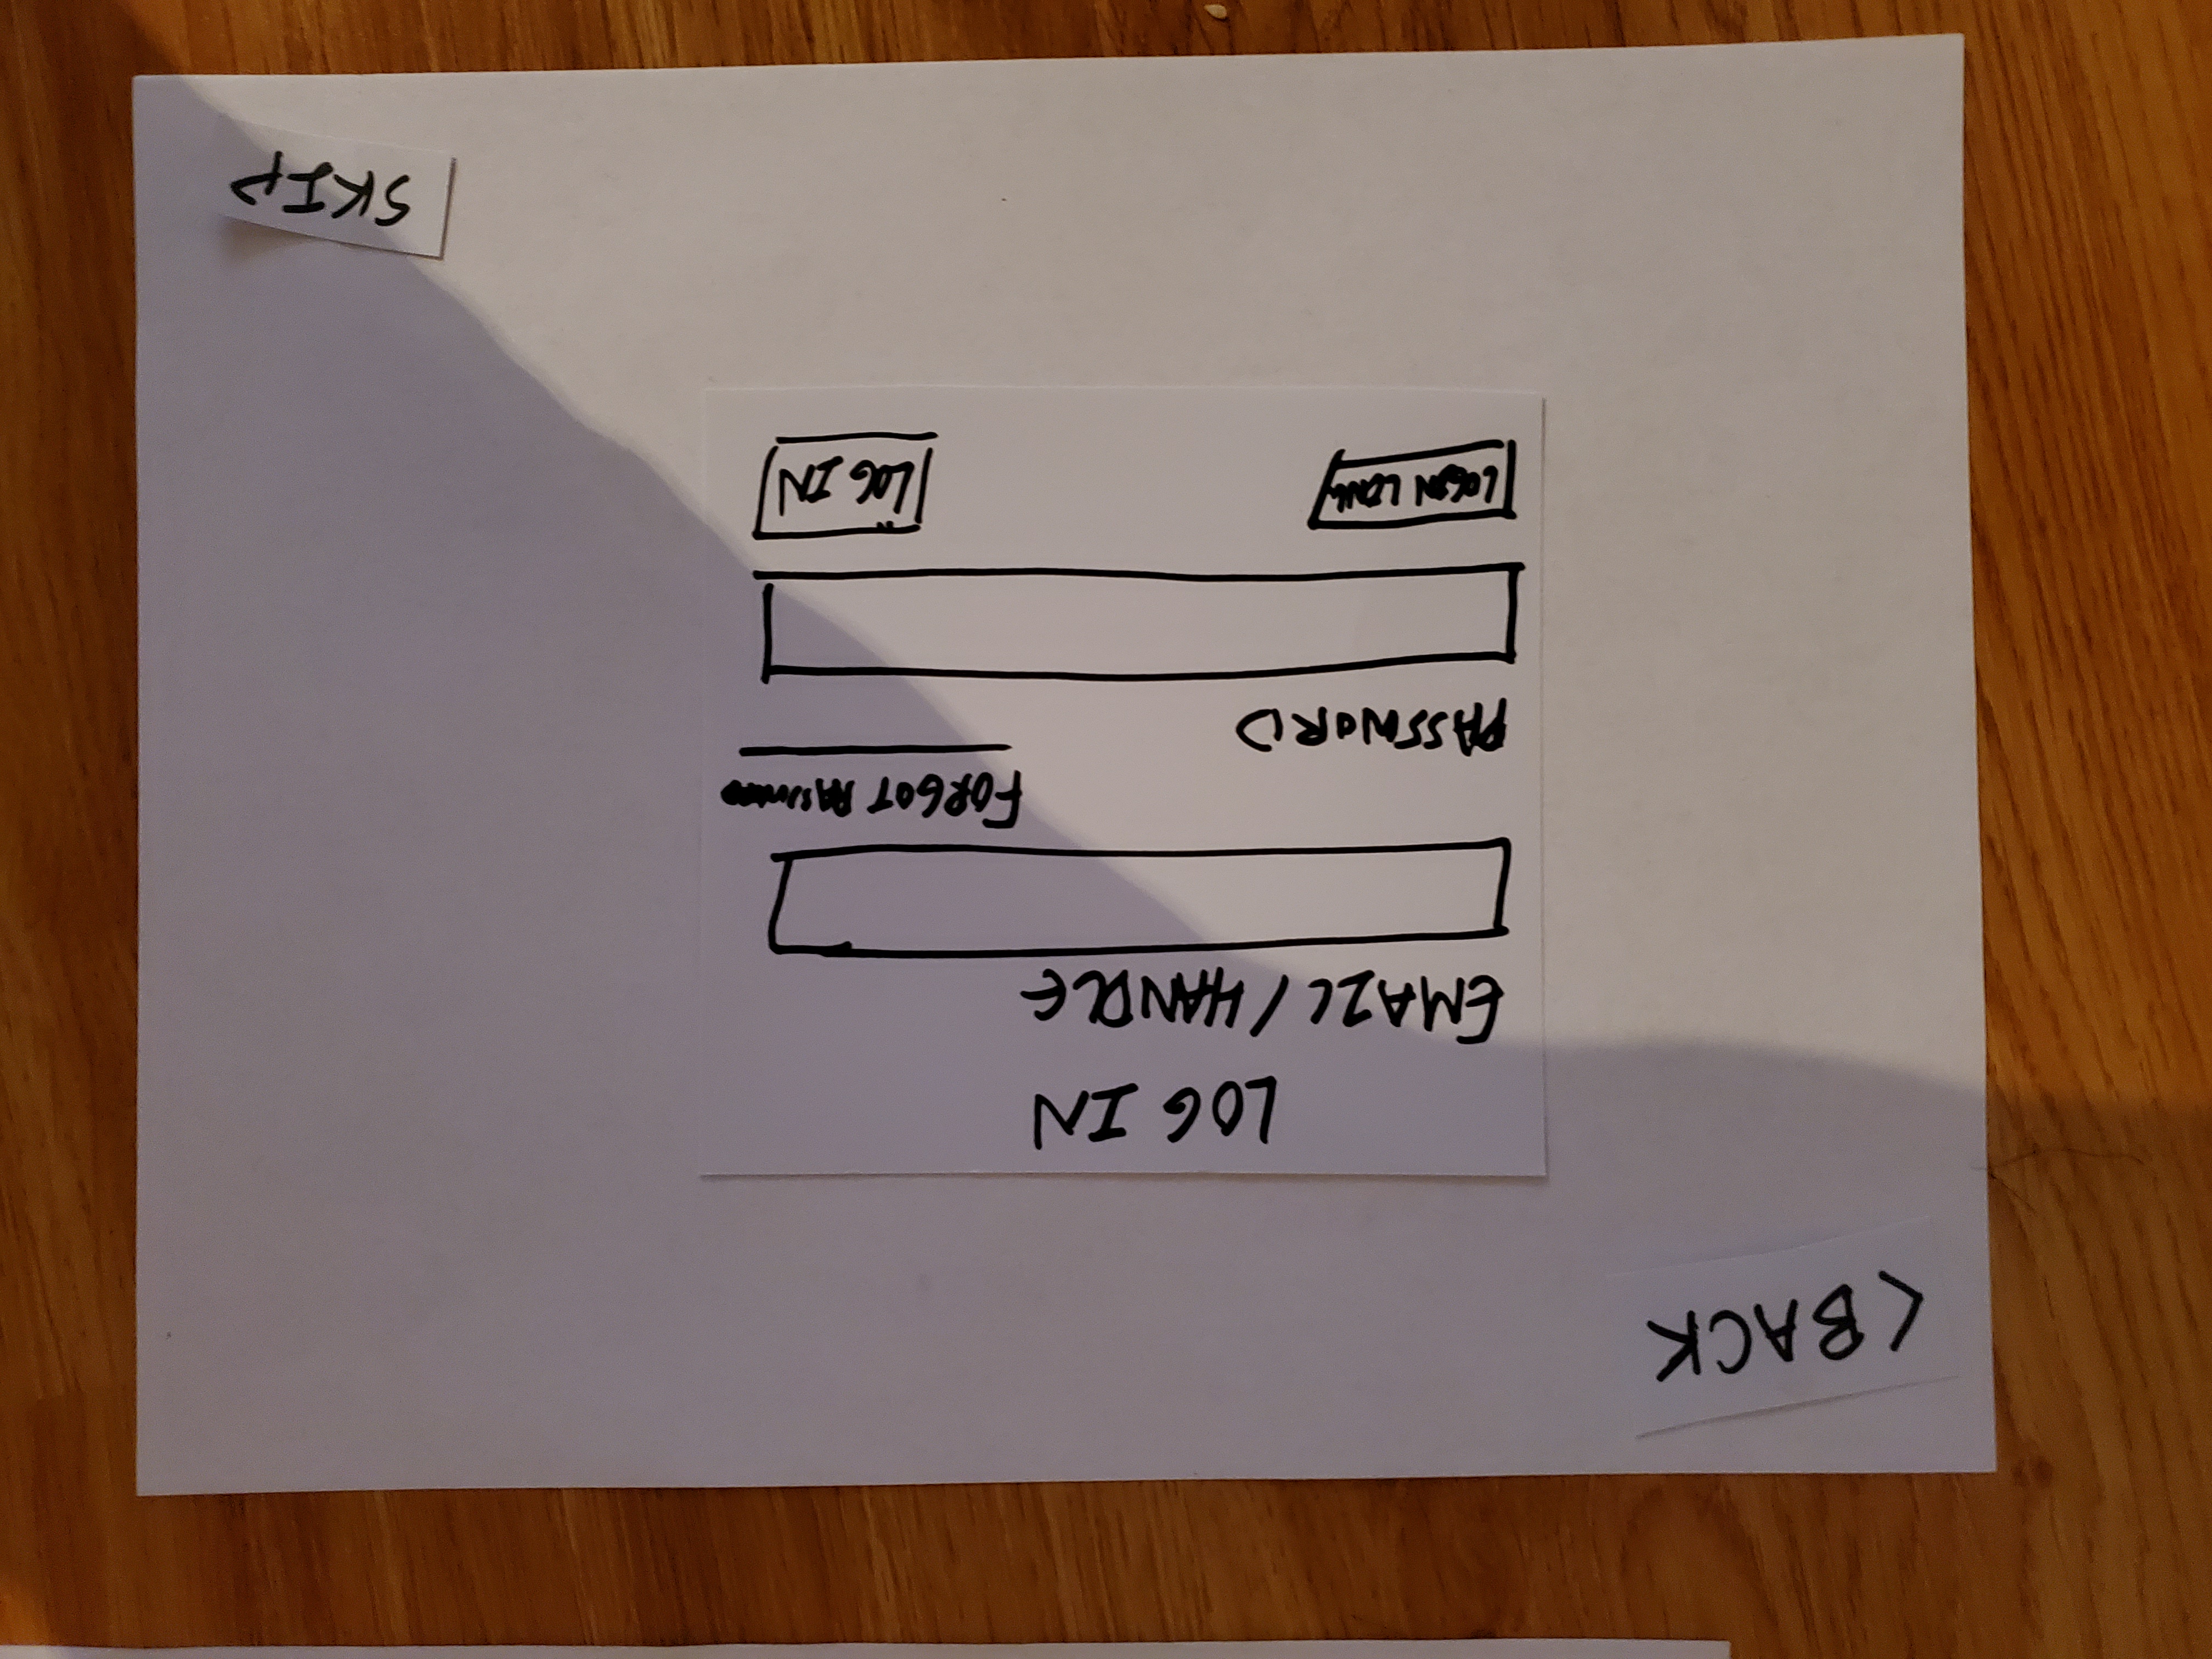 < BACK
LOG IN
EMAIL / HANDLE
FORGOT PASSWORD
PASSWORD
LOGIN LINK
LOG IN
SKIP